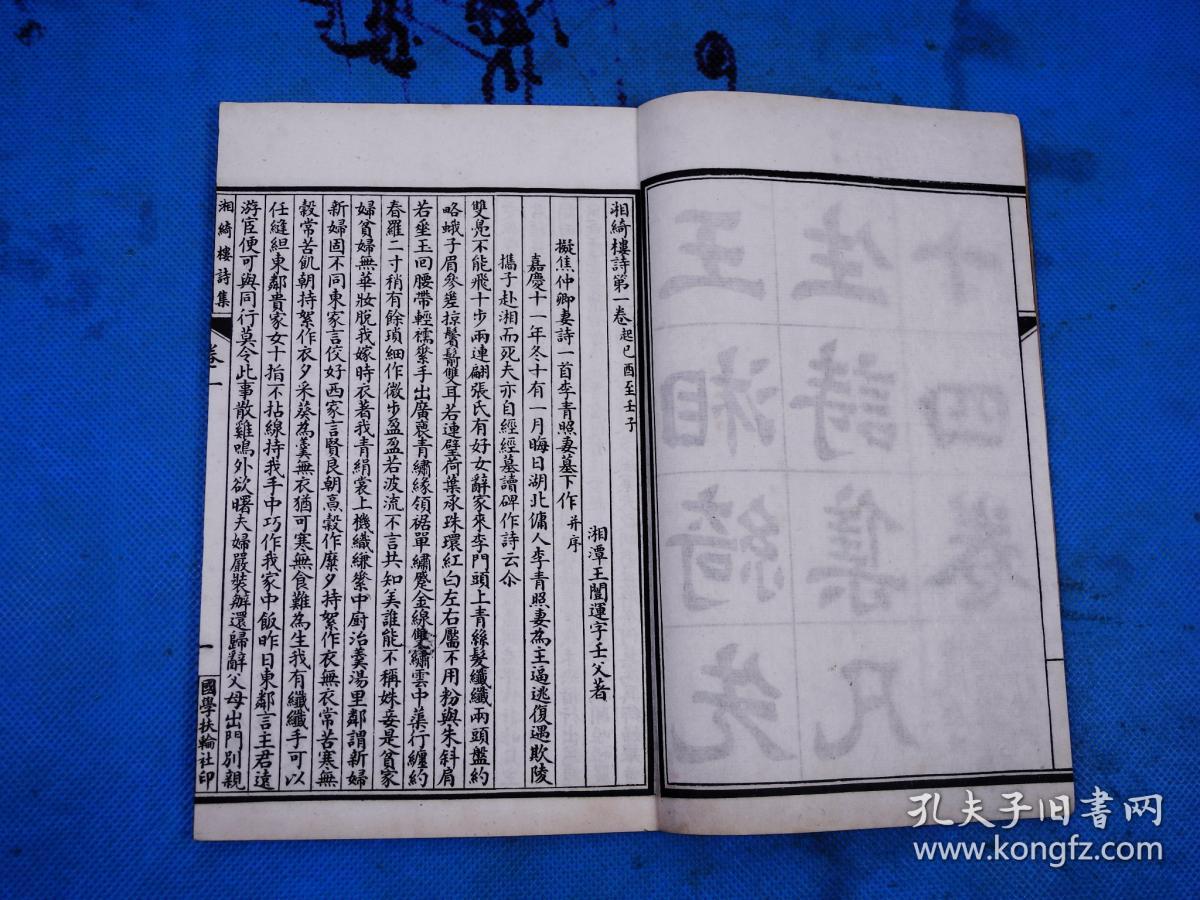 湘綺樓詩第一卷 起己酉至壬子
湘潭王闓運字壬父著
擬焦仲卿妻詩一首李青照妻墓下作 并序
嘉慶十一年冬十有一月晦日湖北傭人李青照妻為主逼逃復遇欺陵
攜子赴湘而死夫亦自經經墓讀碑作詩云尒
雙鳧不能飛十步兩連翩張氏有好女辭家來李門頭上青絲髮纖纖兩頭盤約
略蛾子眉參差掠鬢鬅雙耳若連璧荷葉承珠環紅白左右靨不用粉與朱斜肩
若垂玉回腰帶輕襦縈手出廣裛青繡緣領裾單繡蹙金線雙繡雲中蕖行纏約
春羅二寸稍有餘瑣細作微步盈盈若波流不言共知美誰能不稱姝妾是貧家
婦貧婦無華妝脫我嫁時衣著我青絹裳上機織縑縈中厨治羹湯里鄰謂新婦
新婦固不同東家言佼好西家言賢良朝舂穀作糜夕持絮作衣無衣常苦寒無
穀常苦飢朝持絮作衣夕采葵為羹無衣猶可寒無食難為生我有纖纖手可以
任縫組東鄰貴家女十指不拈線持我手中巧作我家中飯昨日東鄰言主君遠
游宦便可與同行莫令此事散雞鳴外欲曙夫婦嚴裝辦還歸辭父母出門別親
湘綺樓詩集
卷一
一
國學扶輪社印
十四卷
生詩集凡
王湘綺先
孔夫子旧書网
www.kongfz.com